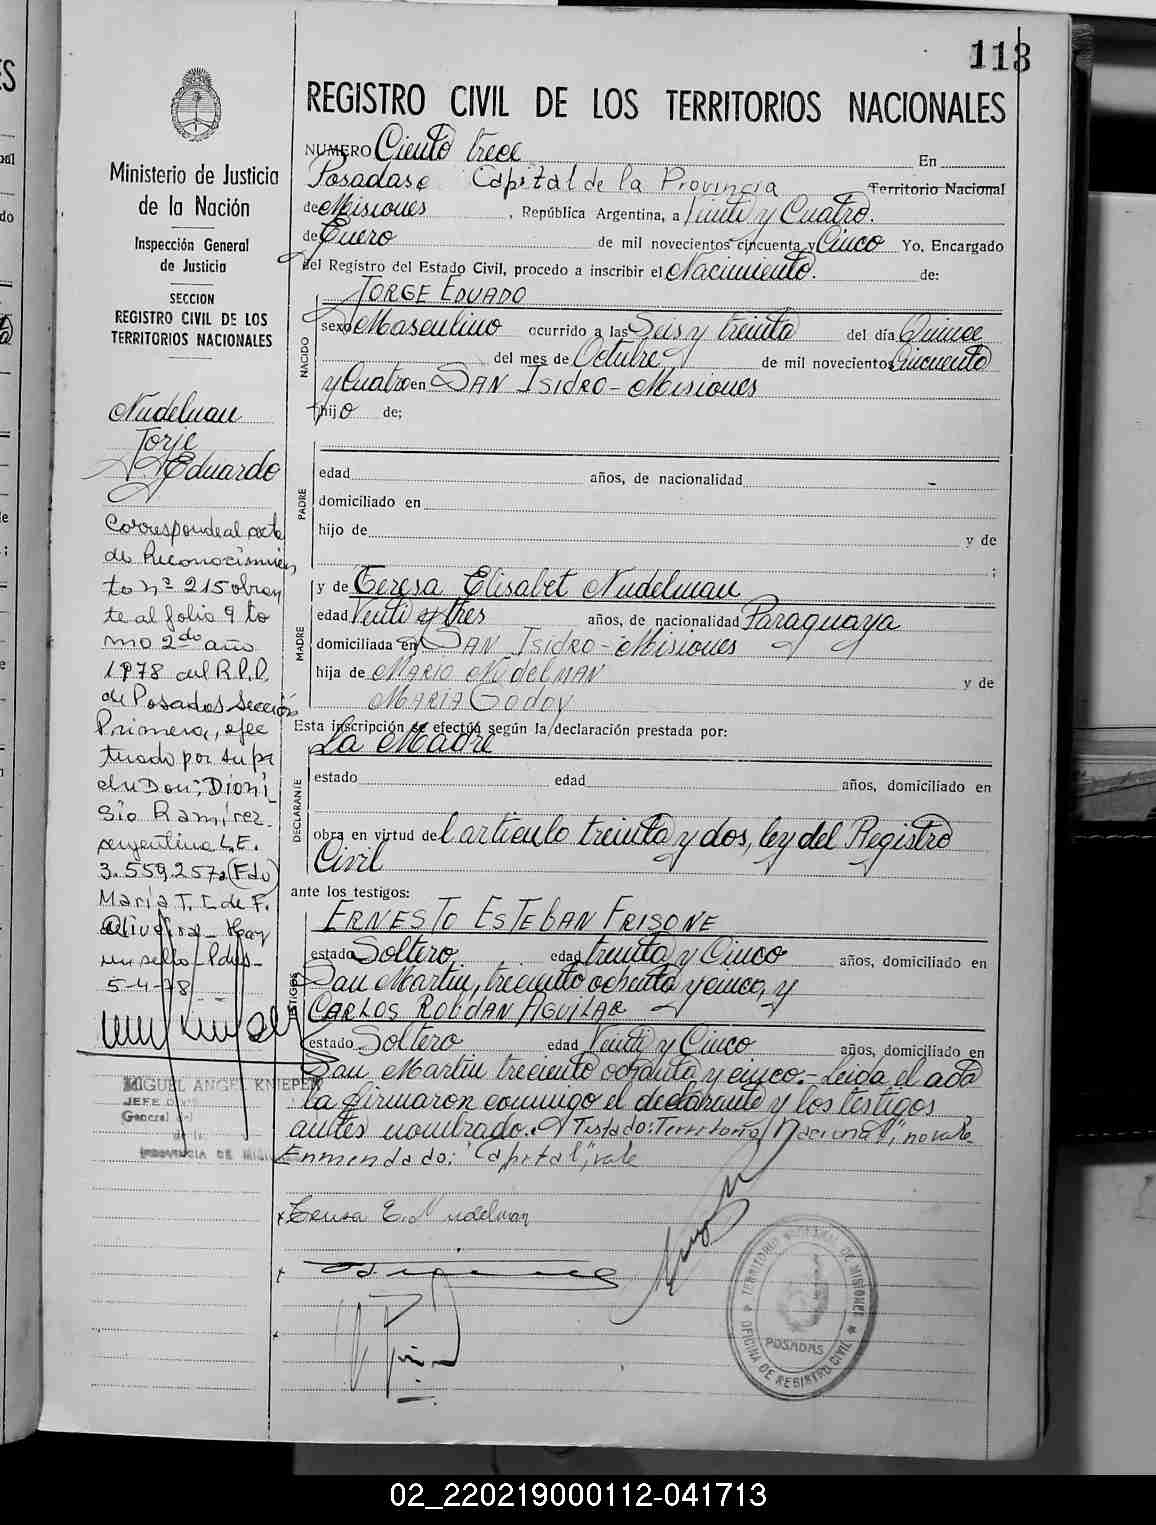 118
REGISTRO CIVIL DE LOS TERRITORIOS NACIONALES
NUMERO Ciento trece En
Posadas Capital de la Provincia Territorio Nacional
de Misiones, República Argentina, a Veinti y Cuatro.
de Enero de mil novecientos cincuenta y Cinco Yo, Encargado
del Registro del Estado Civil, procedo a inscribir el Nacimiento. de:
JORGE EDUADO
NACIDO
sexo Masculino ocurrido a las Seis y treinta del día Quince
del mes de Octubre de mil novecientos Cincuenta
y Cuatro en SAN ISIDRO - Misiones
hijo de;
PADRE
edad años, de nacionalidad -
domiciliado en
hijo de y de
;
MADRE
y de Teresa Elisabet Nudelman
edad Veinti y tres años, de nacionalidad Paraguaya
domiciliada en SAN ISIDRO - Misiones
hija de MARIO NUDELMAN y de
MARIA GODOY
Esta inscripción se efectúa según la declaración prestada por:
La Madre
DECLARANTE
estado edad años, domiciliado en
obra en virtud del articulo treinta y dos, ley del Registro
Civil
ante los testigos:
TESTIGOS
ERNESTO ESTEBAN FRISONE
estado Soltero edad treinta y Cinco años, domiciliado en
San Martin, treciento ochenta y cinco, y
CARLOS ROLDAN AGUILAR
estado Soltero edad Veinti y Cinco años, domiciliado en
San Martin treciento ochenta y cinco.- Leida el acta
la firmaron conmigo el declarante y los testigos
antes nombrado. Testado: "Territorio Nacional", no vale.
Enmendado: "Capital", vale
Teresa E. Nudelman
Ministerio de Justicia
de la Nación
Inspección General
de Justicia
SECCION
REGISTRO CIVIL DE LOS
TERRITORIOS NACIONALES
Nudelman
Jorje
Eduardo
Corresponde al acta
de Reconocimien
to nº 215 obran
te al folio 9 to
mo 2do año
1978 del R.P.P.
de Posadas Sección
Primera, efec
tuado por su pa
dre Don: Dioni
sio Ramirez
argentino L.E.
3.559.257, (Fdo)
María T. L de F.
Oliveira - Hay
un sello - Pdas -
5-4-78
MIGUEL ANGEL KNIEPER
JEFE
General
PROVINCIA DE MISIONES
TERRITORIO NACIONAL DE MISIONES
POSADAS
OFICINA DE REGISTRO CIVIL
02_220219000112-041713